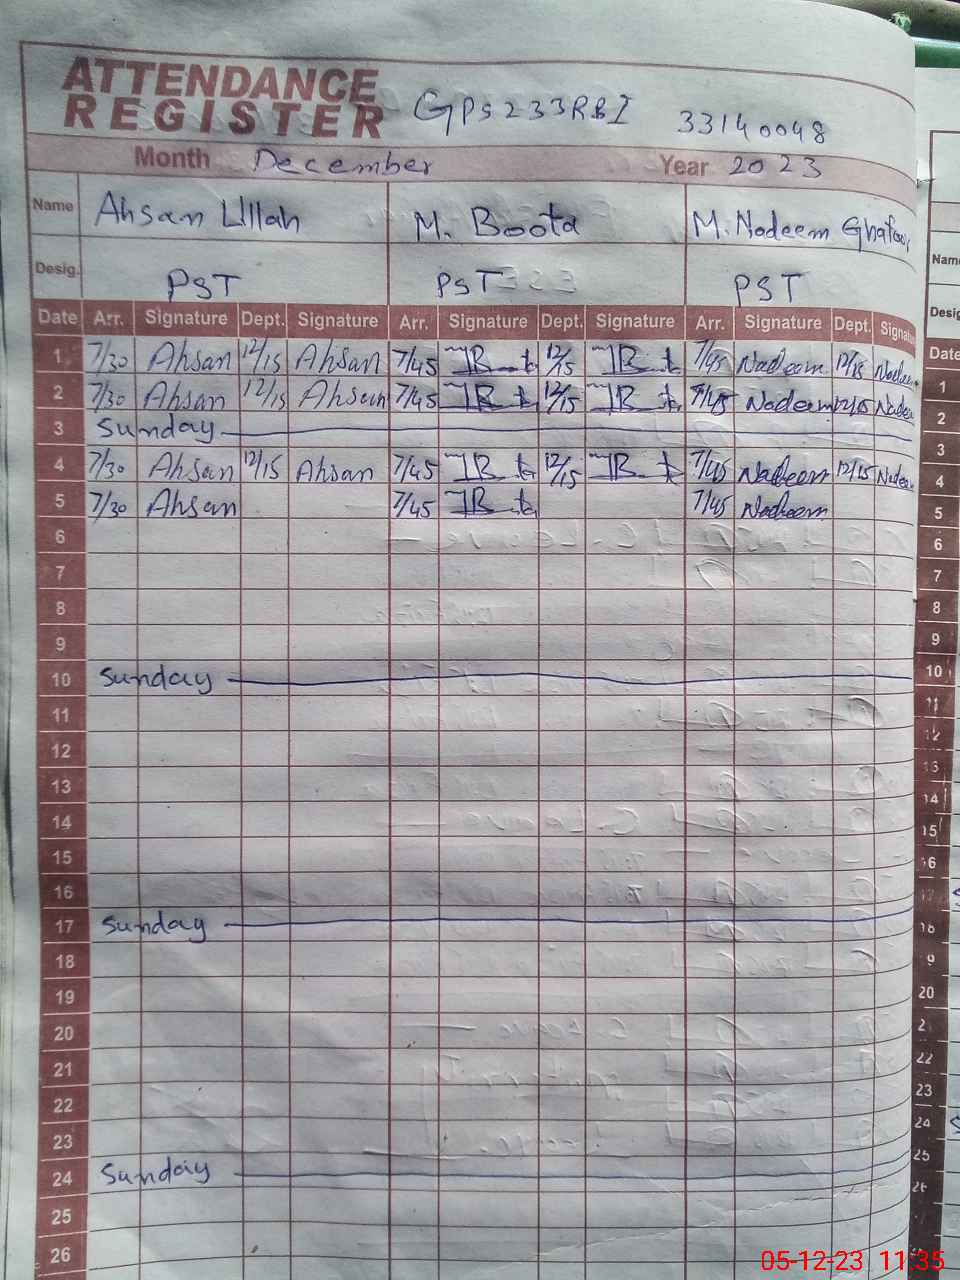 ATTENDANCE
REGISTER
GPS 233RBI 33140048
Month December Year 2023
Name Ahsan Ullah M. Boota M. Nadeem Ghafoor
Desig. PST PST PST
Date Arr. Signature Dept. Signature Arr. Signature Dept. Signature Arr. Signature Dept. Signatu
1 7/30 Ahsan 12/15 Ahsan 7/45 12/15 7/45 Nadeem 12/15 Nadeem
2 7/30 Ahsan 12/15 Ahsan 7/45 12/15 7/45 Nadeem 12/15 Nadee
3 Sunday
4 7/30 Ahsan 12/15 Ahsan 7/45 12/15 7/45 Nadeem 12/15 Nadee
5 7/30 Ahsan 7/45 7/45 Nadeem
6
7
8
9
10 Sunday
11
12
13
14
15
16
17 Sunday
18
19
20
21
22
23
24 Sunday
25
26
Name
Desig
Date
1
2
3
4
5
6
7
8
9
10
11
12
13
14
15
16
18
20
22
23
24
25
05-12-23 11:35